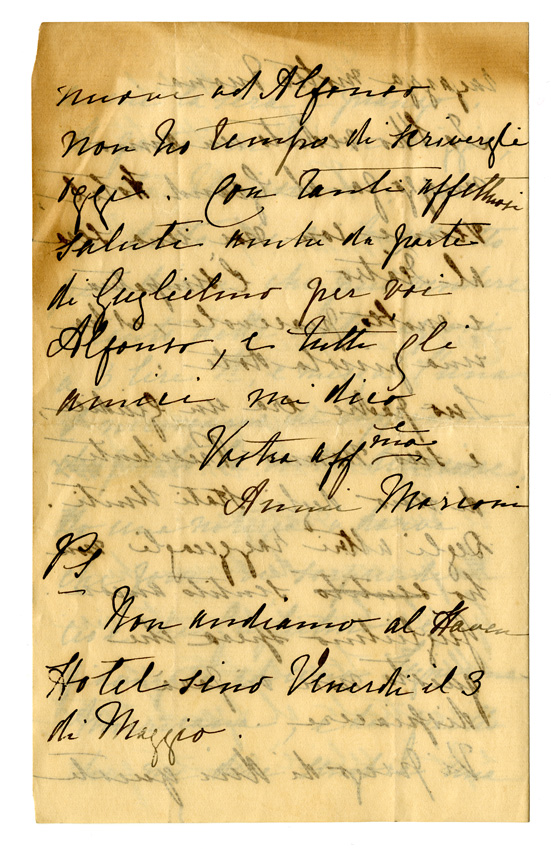 nuove ad Alfonso
non ho tempo di scrivergli
oggi. Con tanti affettuosi
saluti anche da parte
di Guglielmo per voi
Alfonso, e tutti gli
amici mi dico
Vostra aff.ma
Annie Marconi
PS
Non andiamo al Haven
Hotel sino Venerdi il 3
di Maggio.